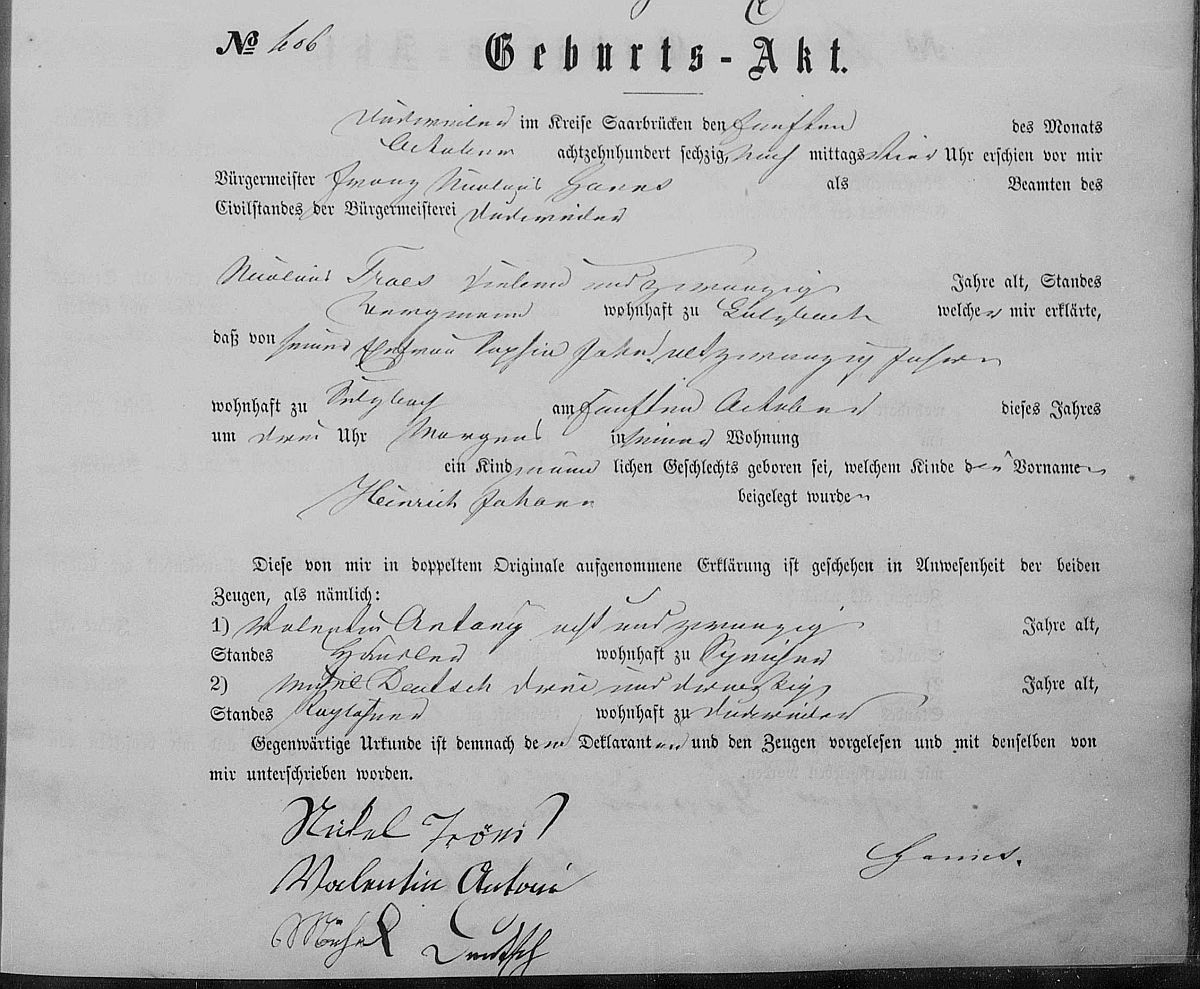 № 606 Geburts-Akt.
Dudweiler im Kreise Saarbrücken den fünften des Monats
October achtzehnhundert sechzig, nach mittags vier Uhr erschien vor mir
Bürgermeister Franz Nicolaus als Beamten des
Civilstandes der Bürgermeisterei Dudweiler
Nicolaus Troes sieben und zwanzig Jahre alt, Standes
Bergmann wohnhaft zu Sulzbach welcher mir erklärte,
daß von seiner Ehefrau Sophia Jahn, zwanzig Jahre
wohnhaft zu Sulzbach am fünften October dieses Jahres
um drei Uhr Morgens in seiner Wohnung
ein Kind männ lichen Geschlechts geboren sei, welchem Kinde die Vornamen
Heinrich Johann beigelegt wurden
Diese von mir in doppeltem Originale aufgenommene Erklärung ist geschehen in Anwesenheit der beiden
Zeugen, als nämlich:
1) Valentin Antony acht und zwanzig Jahre alt,
Standes Händler wohnhaft zu
2) Michel Deutsch drei und dreißig Jahre alt,
Standes Taglöhner wohnhaft zu Dudweiler
Gegenwärtige Urkunde ist demnach dem Deklaranten und den Zeugen vorgelesen und mit denselben von
mir unterschrieben worden.
Nickel Trönis
Valentin Antoni
Michel Deutsch